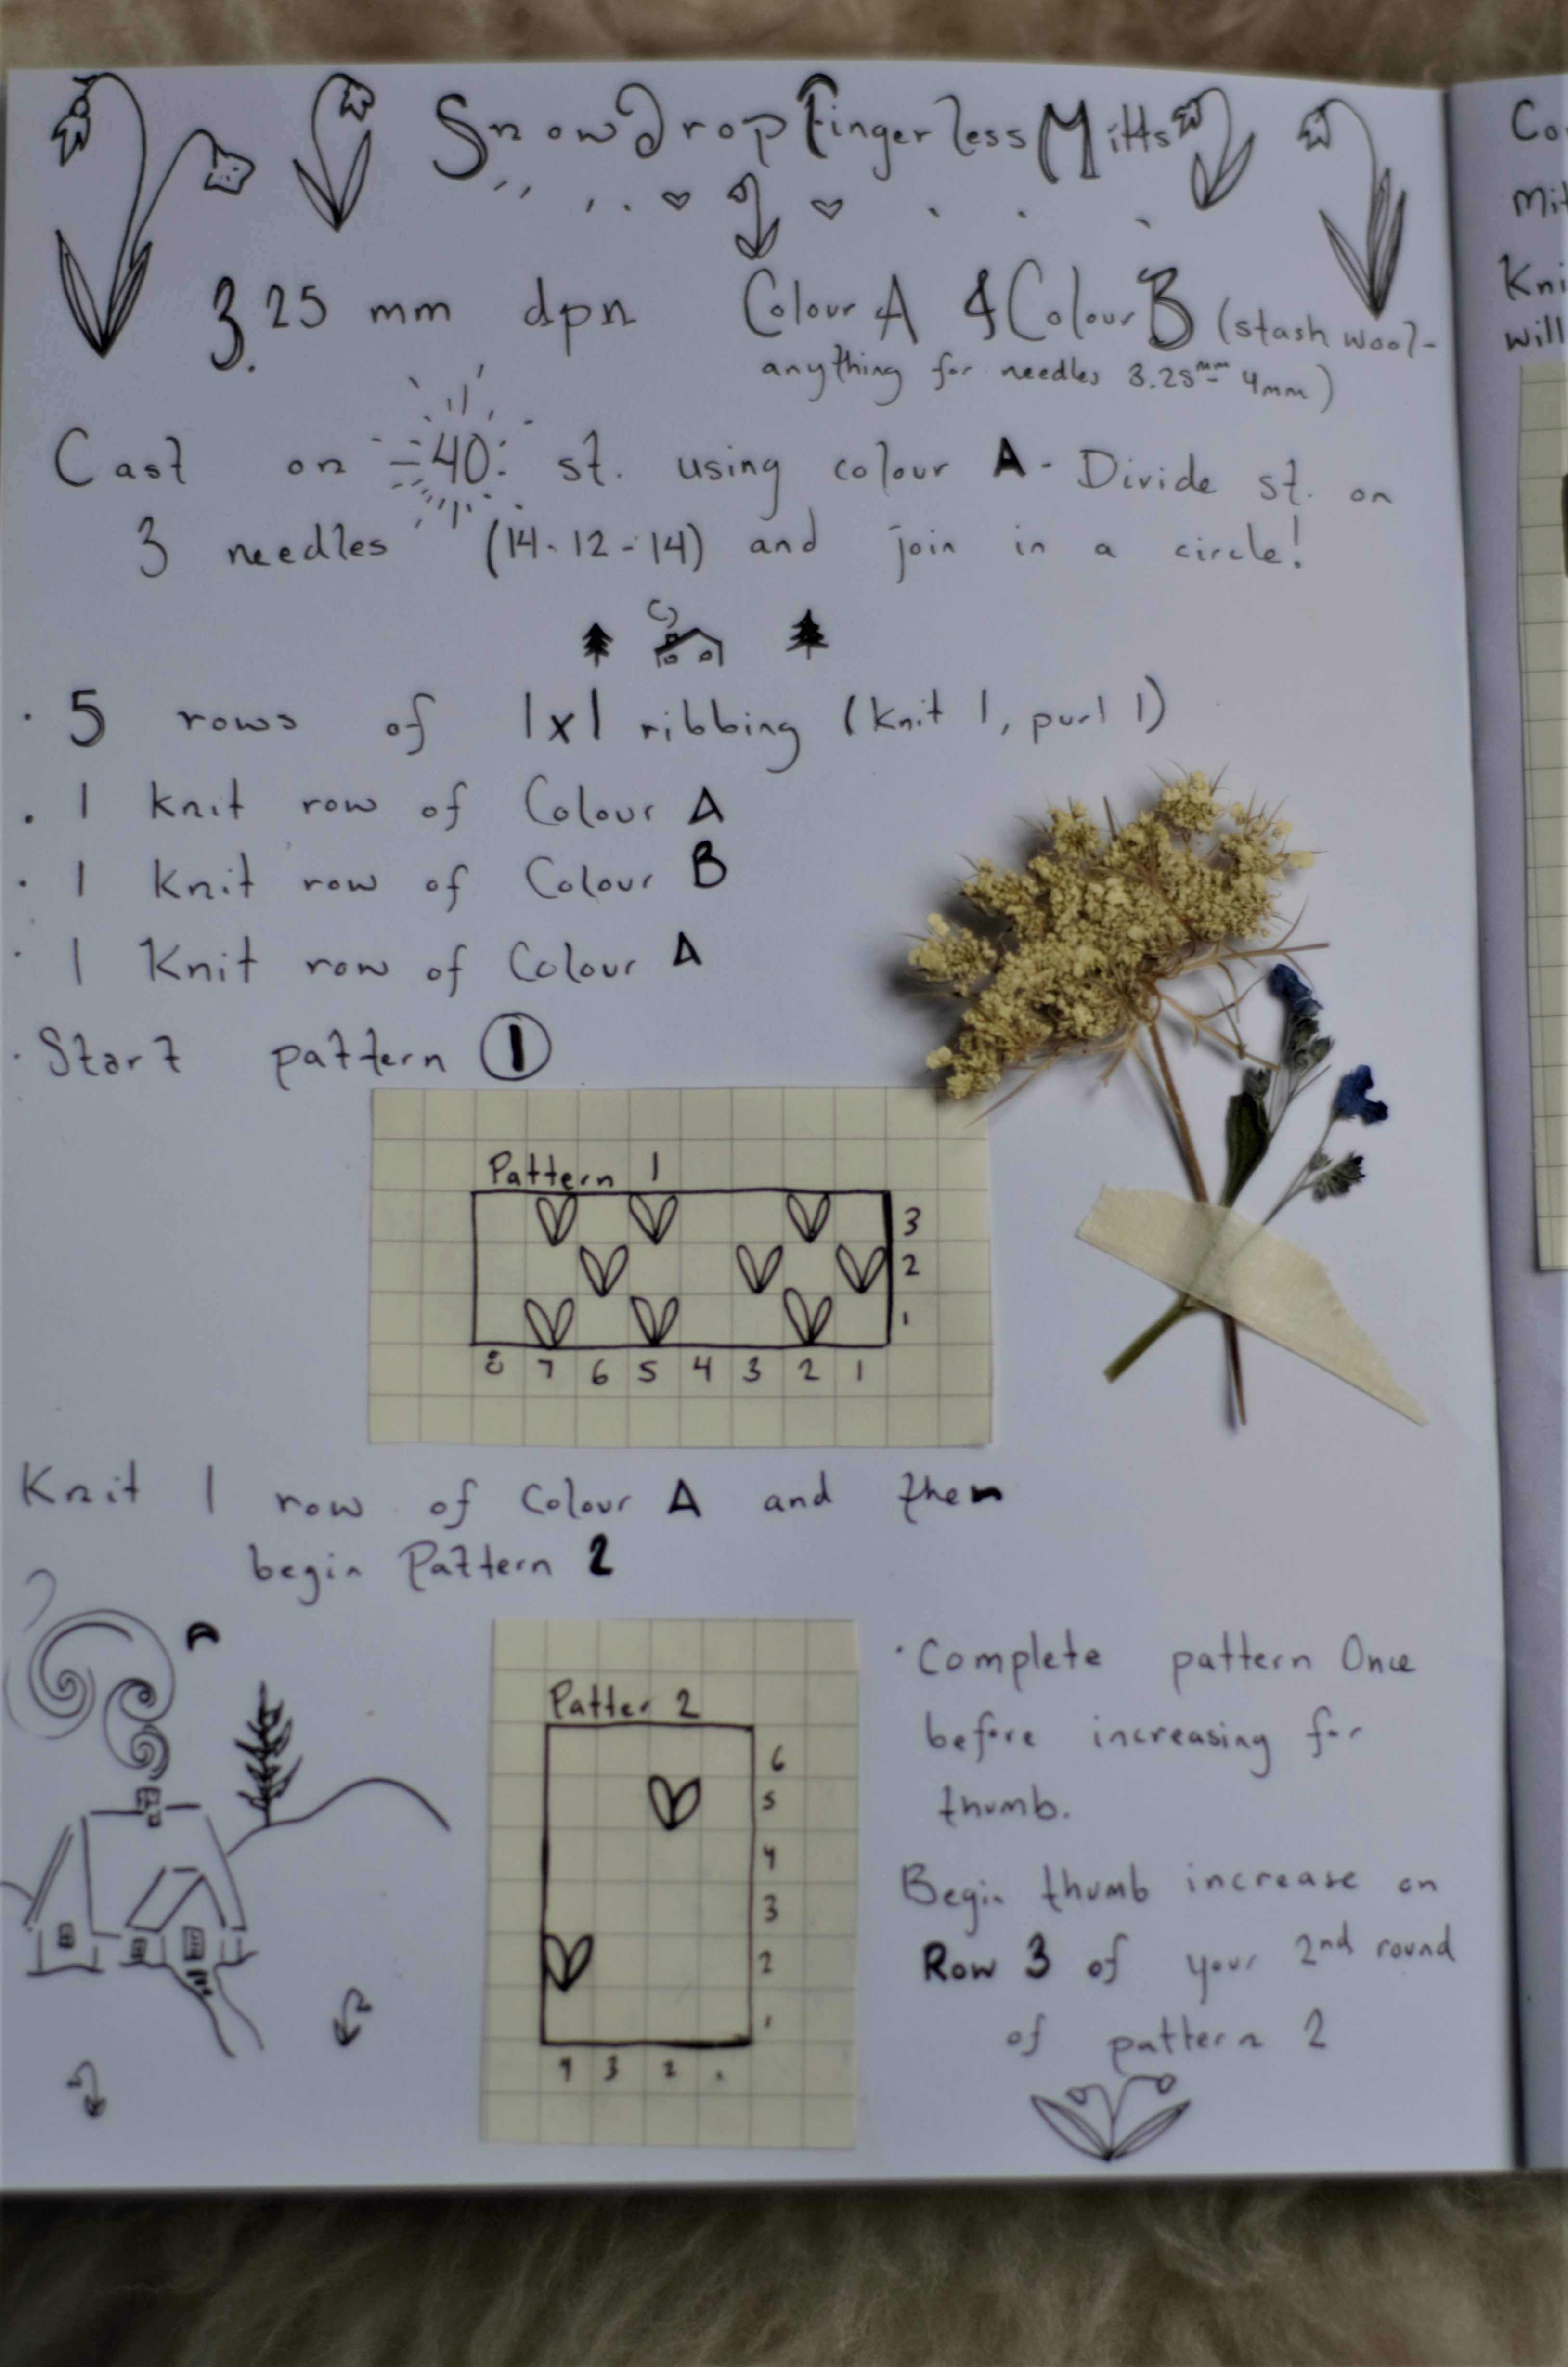 Snowdrop Fingerless Mitts
3.25 mm dpn Colour A & Colour B (stash wool-
anything for needles 3.25mm - 4mm)
Cast on -40- st. using colour A - Divide st. on
3 needles (14-12-14) and join in a circle!
· 5 rows of 1x1 ribbing (knit 1, purl 1)
· 1 knit row of Colour A
· 1 knit row of Colour B
· 1 Knit row of Colour A
· Start pattern 1
Pattern 1
3
2
1
8 7 6 5 4 3 2 1
Knit 1 row of Colour A and then
begin Pattern 2
Patter 2
6
5
4
3
2
1
4 3 2 .
· Complete pattern Once
before increasing for
thumb.
Begin thumb increase on
Row 3 of your 2nd round
of pattern 2
Co
Mit
Kni
will